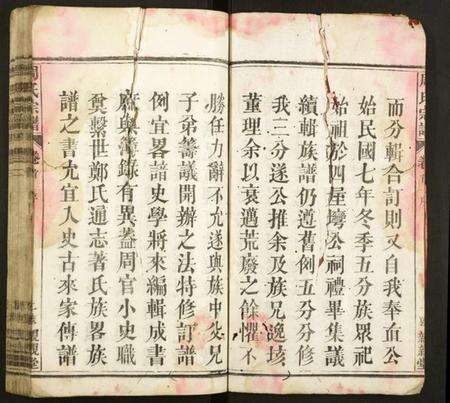 而分輯合訂則又自我奉直公
始民國七年冬季五分族眾祀
始祖於四屋塆公祠禮畢集議
續輯族譜仍遵舊例五分分修
我三分遂公推余及族兄逸垓
董理余以衰邁荒廢之餘懼不
勝任力辭不允遂與族中父兄
子弟籌議開辦之法特修訂譜
例宜畧諳史學將來編輯成書
庶與簿錄有異蓋周官小史職
奠繫世鄭氏通志著氏族畧族
譜之書尤宜入史古來家傳譜
周氏宗譜
卷首